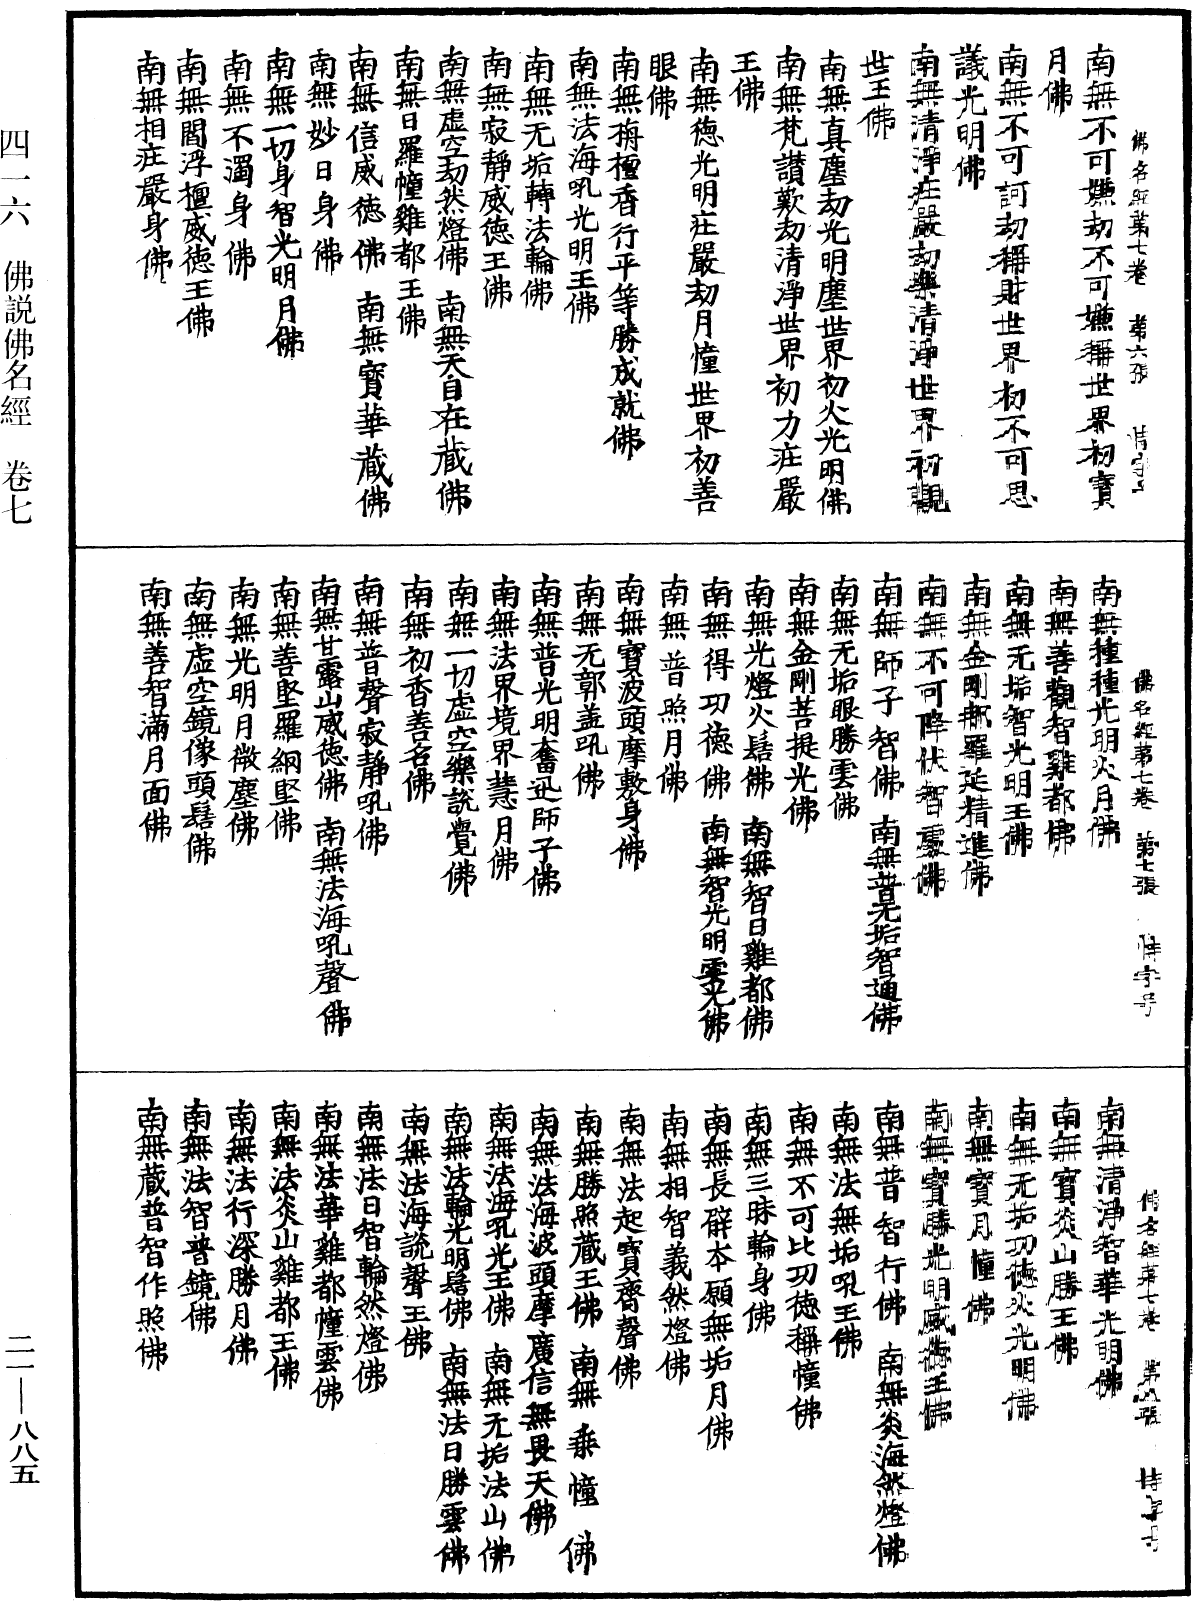 佛名經第七卷　第六張
南無不可嫌劫不可嫌稱世界初寶
月佛
南無不可訶劫稱財世界初不可思
議光明佛
南無清淨莊嚴劫樂清淨世界初觀
世王佛
南無真塵劫光明塵世界初火光明佛
南無梵讚歎劫清淨世界初力莊嚴
王佛
南無德光明莊嚴劫月幢世界初善
眼佛
南無栴檀香行平等勝成就佛
南無法海吼光明王佛
南無无垢轉法輪佛
南無寂靜威德王佛
南無虛空劫然燈佛　南無天自在藏佛
南無日羅幢雞都王佛
南無信威德佛　南無寶華藏佛
南無妙日身佛
南無一切身智光明月佛
南無不濁身佛
南無閻浮檀威德王佛
南無相莊嚴身佛
佛名經第七卷　第七張　字号
南無種種光明火月佛
南無善觀智雞都佛
南無无垢智光明王佛
南無金剛那羅延精進佛
南無不可降伏智處佛
南無師子智佛　南無普无垢智通佛
南無无垢眼勝雲佛
南無金剛菩提光佛
南無光燈火髻佛　南無智日雞都佛
南無得功德佛　南無智光明雲光佛
南無普照月佛
南無寶波頭摩敷身佛
南無无郭蓋吼佛
南無普光明奮迅師子佛
南無法界境界慧月佛
南無一切虛空樂說覺佛
南無初香善名佛
南無普聲寂靜吼佛
南無甘露山威德佛　南無法海吼聲佛
南無善堅羅網堅佛
南無光明月微塵佛
南無虛空鏡像頭髻佛
南無善智滿月面佛
佛名經第七卷　第八張　字号
南無清淨智華光明佛
南無寶炎山勝王佛
南無无垢功德火光明佛
南無寶月幢佛
南無寶勝光明威德王佛
南無普智行佛　南無炎海然燈佛
南無法無垢吼王佛
南無不可比功德稱幢佛
南無三昧輪身佛
南無長辟本願無垢月佛
南無相智義然燈佛
南無法起寶齊聲佛
南無勝照藏王佛　南無乘幢佛
南無法海波頭摩廣信無畏天佛
南無法海吼光王佛　南無无垢法山佛
南無法輪光明髻佛　南無法日勝雲佛
南無法海說聲王佛
南無法日智輪然燈佛
南無法華雞都幢雲佛
南無法炎山雞都王佛
南無法行深勝月佛
南無法智普鏡佛
南無藏普智作照佛
四一六　佛説佛名經　卷七
二一—八八五